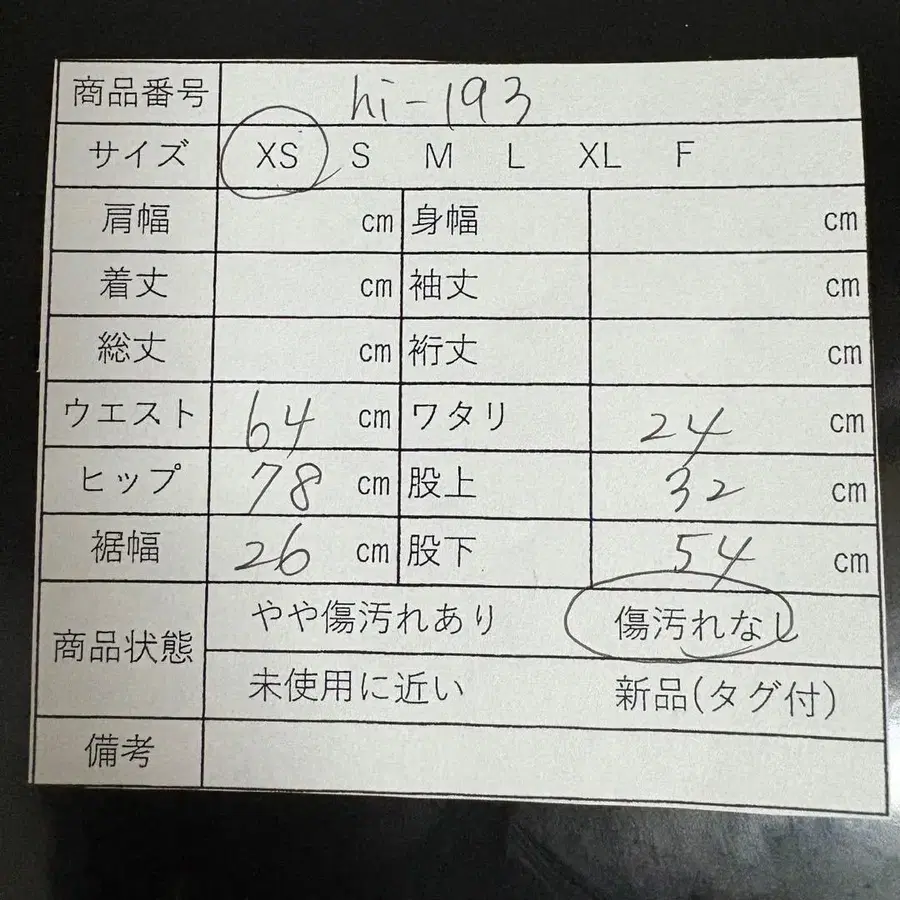 商品番号 hi-193
サイズ XS S M L XL F
肩幅 cm 身幅 cm
着丈 cm 袖丈 cm
総丈 cm 裄丈 cm
ウエスト 64 cm ワタリ 24 cm
ヒップ 78 cm 股上 32 cm
裾幅 26 cm 股下 54 cm
商品状態 やや傷汚れあり 傷汚れなし
未使用に近い 新品(タグ付)
備考